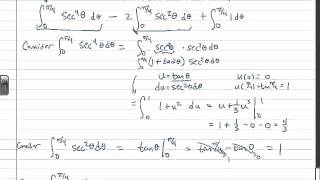 ∫₀^{π/4} sec⁴θ dθ − 2 ∫₀^{π/4} sec²θ dθ + ∫₀^{π/4} 1 dθ
Consider ∫₀^{π/4} sec⁴θ dθ = ∫₀^{π/4} sec²θ · sec²θ dθ
∫₀^{π/4} (1 + tan²θ) sec²θ dθ
u = tanθ u(0) = 0
du = sec²θ dθ u(π/4) = tan π/4 = 1
= ∫₀¹ 1 + u² du = u + 1/3 u³ |₀¹
= 1 + 1/3 − 0 − 0 = 4/3
Consider ∫₀^{π/4} sec²θ dθ = tanθ |₀^{π/4} = tan π/4 − tan 0 = 1